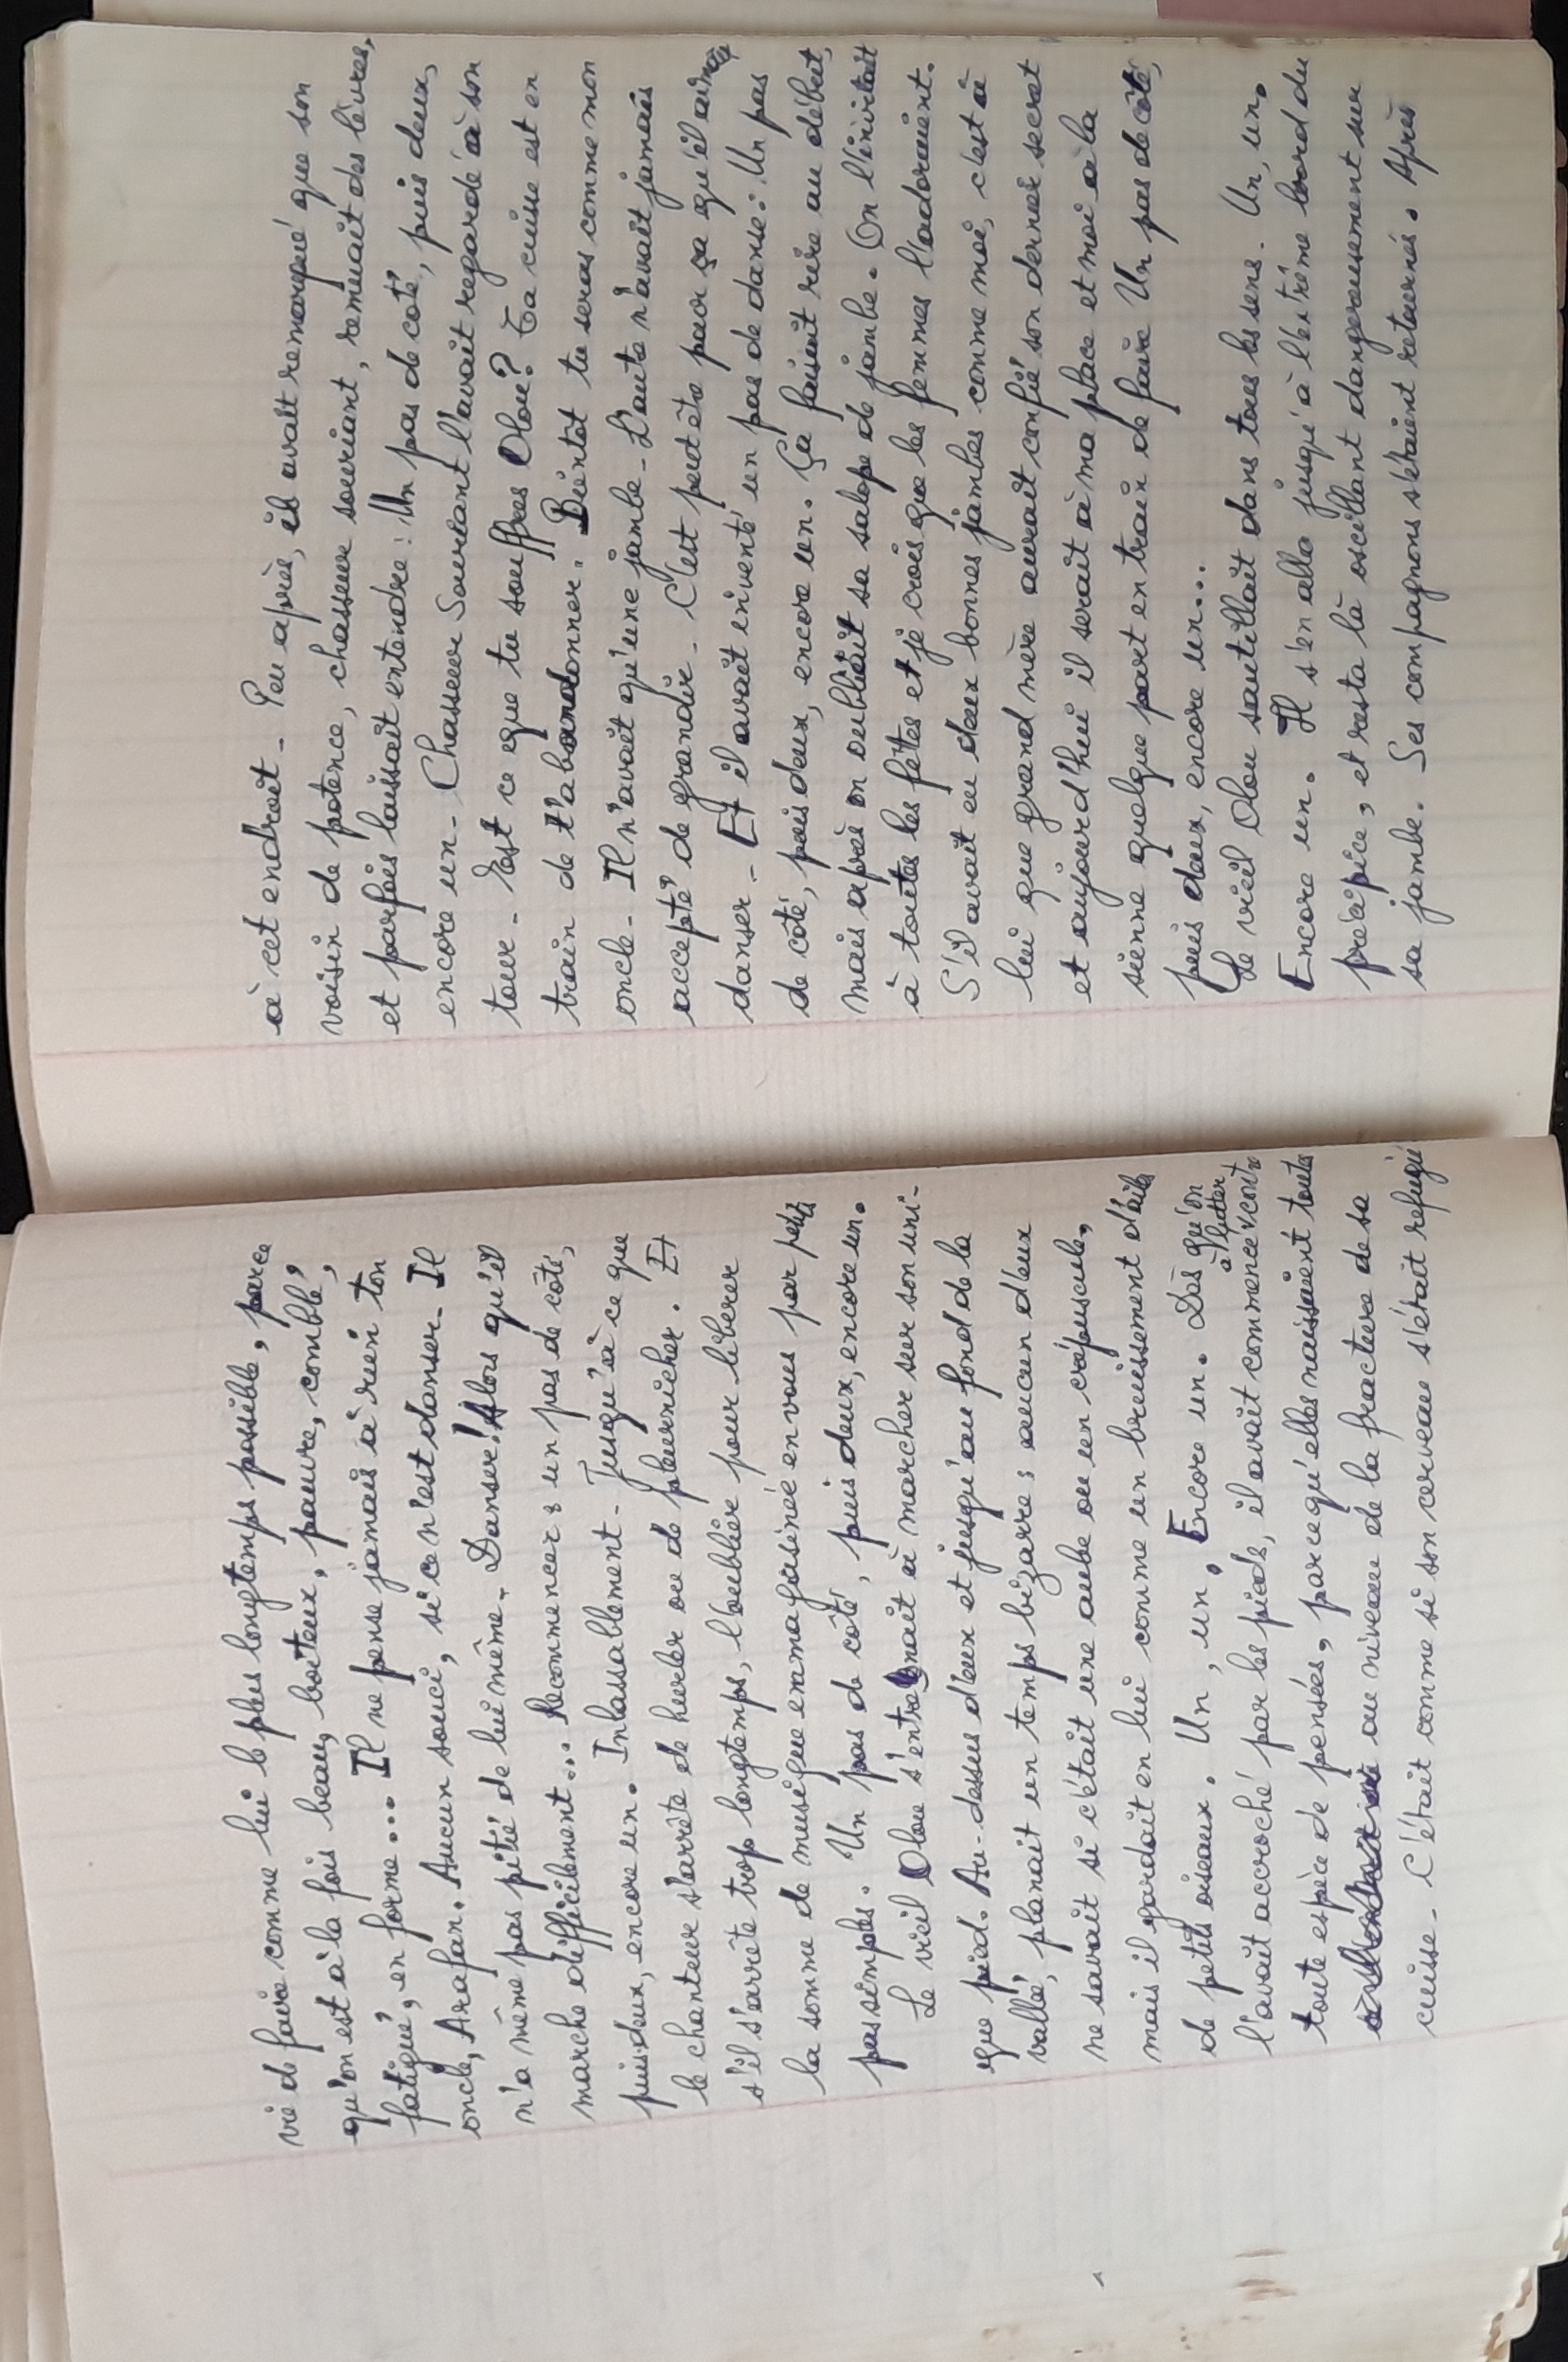 vie de faire comme lui le plus longtemps possible, parce
qu'on est à la fois beau, boiteux, pauvre, comblé,
fatigué, en forme... Il ne pense jamais à rien ton
oncle, Arafan. Aucun souci, si ce n'est danser. Il
n'a même pas pitié de lui même. Danser! Alors qu'il
marche difficilement... Recommencer: un pas de côté,
puis deux, encore un. Inlassablement - Jusqu'à ce que
le chanteur s'arrête de hurler ou de pleurnicher. Et
s'il s'arrête trop longtemps, l'oublier pour libérer
la somme de musique emmagasinée en vous par petits
pas simples. Un pas de côté, puis deux, encore un.
Le vieil Olou s'entraînait à marcher sur son uni-
que pied. Au-dessus d'eux et jusqu'au fond de la
vallée, planait un temps bizarre; aucun d'eux
ne savait si c'était une aube ou un crépuscule,
mais il gardait en lui comme un bruissement d'ailes
de petits oiseaux. Un, un. Encore un. Dès qu'on
l'avait accroché par les pieds, il avait commencé à lutter contre
toute espèce de pensées, parce qu'elles naissaient toutes
au niveau de la fracture de sa
cuisse - C'était comme si son cerveau s'était refugié
à cet endroit - Peu après, il avait remarqué que son
voisin de potence, chasseur souriant, remuait des lèvres,
et parfois laissait entendre: Un pas de coté, puis deux,
encore un - Chasseur Souriant l'avait regardé à son
tour - Est ce que tu souffres Olou? Ta cuisse est en
train de t'abandonner. Bientôt tu seras comme mon
oncle - Il n'avait qu'une jambe - L'autre n'avait jamais
accepté de grandir - C'est peut être pour ça qu'il aimait
danser - Et il avait inventé un pas de danse: Un pas
de côté, puis deux, encore un. Ça faisait rire au début,
mais après on oubliait sa salope de jambe. On l'invitait
à toutes les fêtes et je crois que les femmes l'adoraient.
S'il avait eu deux bonnes jambes comme moi, c'est à
lui que grand mère aurait confié son dernier secret
et aujourd'hui il serait à ma place et moi à la
sienne quelque part en train de faire Un pas de côté,
puis deux, encore un...
Le vieil Olou sautillait dans tous les sens. Un, un.
Encore un. Il s'en alla jusqu'à l'extrême bord du
précipice, et resta là oscillant dangereusement sur
sa jambe. Ses compagnons s'étaient retournés. Après